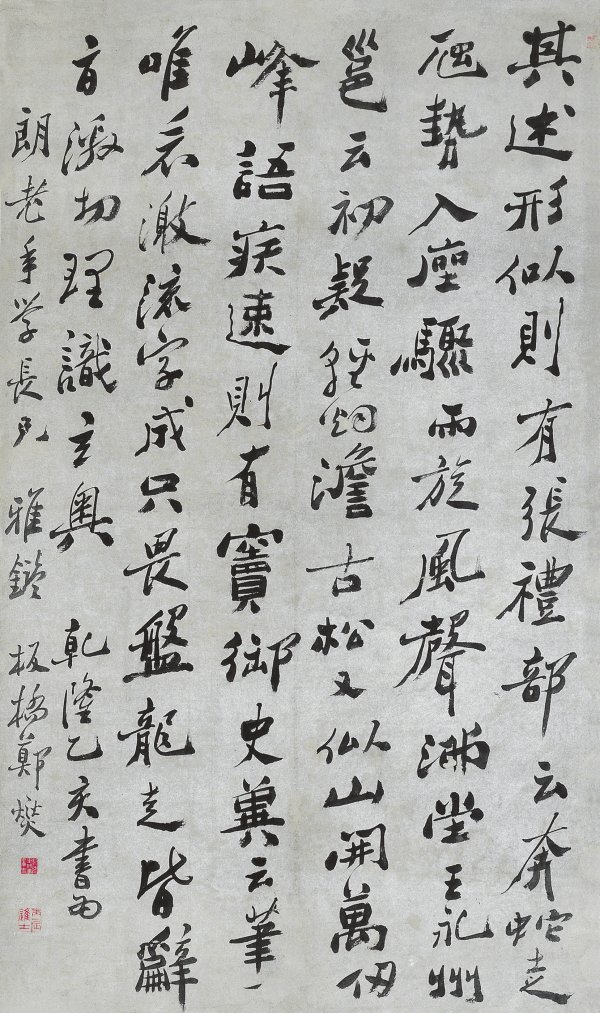 其述形似則有張禮部云奔蛇走
虺勢入座驟雨旋風聲滿堂王永州
邕云初疑輕烟澹古松又似山開萬仞
峰語疾速則有竇御史冀云筆一
唯看激流字成只畏盤龍走皆辭
旨激切理識玄奥 乾隆乙亥書為
朗老年学長兄 雅鑒 板橋鄭燮